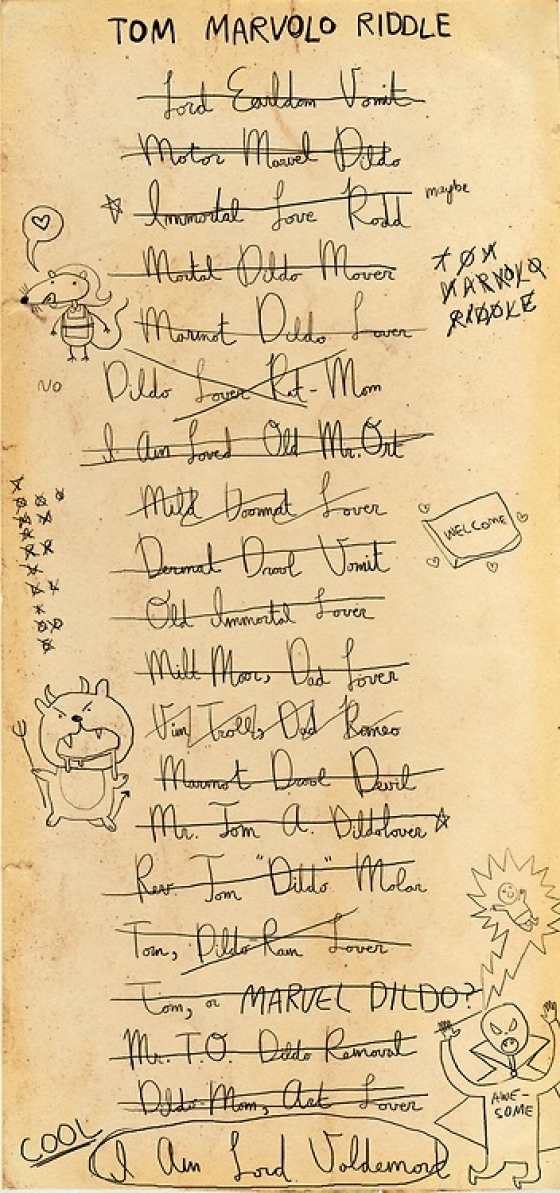 TOM MARVOLO RIDDLE
Lord Earldom Vomit
Motor Marvel Dildo
Immortal Love Rodd
maybe
Mortal Dildo Mover
TOM
MARVOLO
RIDDLE
Marmot Dildo Lover
NO
Dildo Lover Rat-Mom
I Am Loved Old Mr. Ort
Mild Doormat Lover
WELCOME
Dermal Drool Vomit
Old Immortal Lover
Milt Moor, Dad Lover
Vim Trolls, Dad Romeo
Marmot Drool Devil
Mr. Tom A. Dildolover
Rev. Tom "Dildo" Molar
Tom, Dildo Ram Lover
Tom, or MARVEL DILDO?
Mr. T.O. Dildo Removal
Dildo Mom, Art Lover
AWE-
SOME
COOL
I Am Lord Voldemort